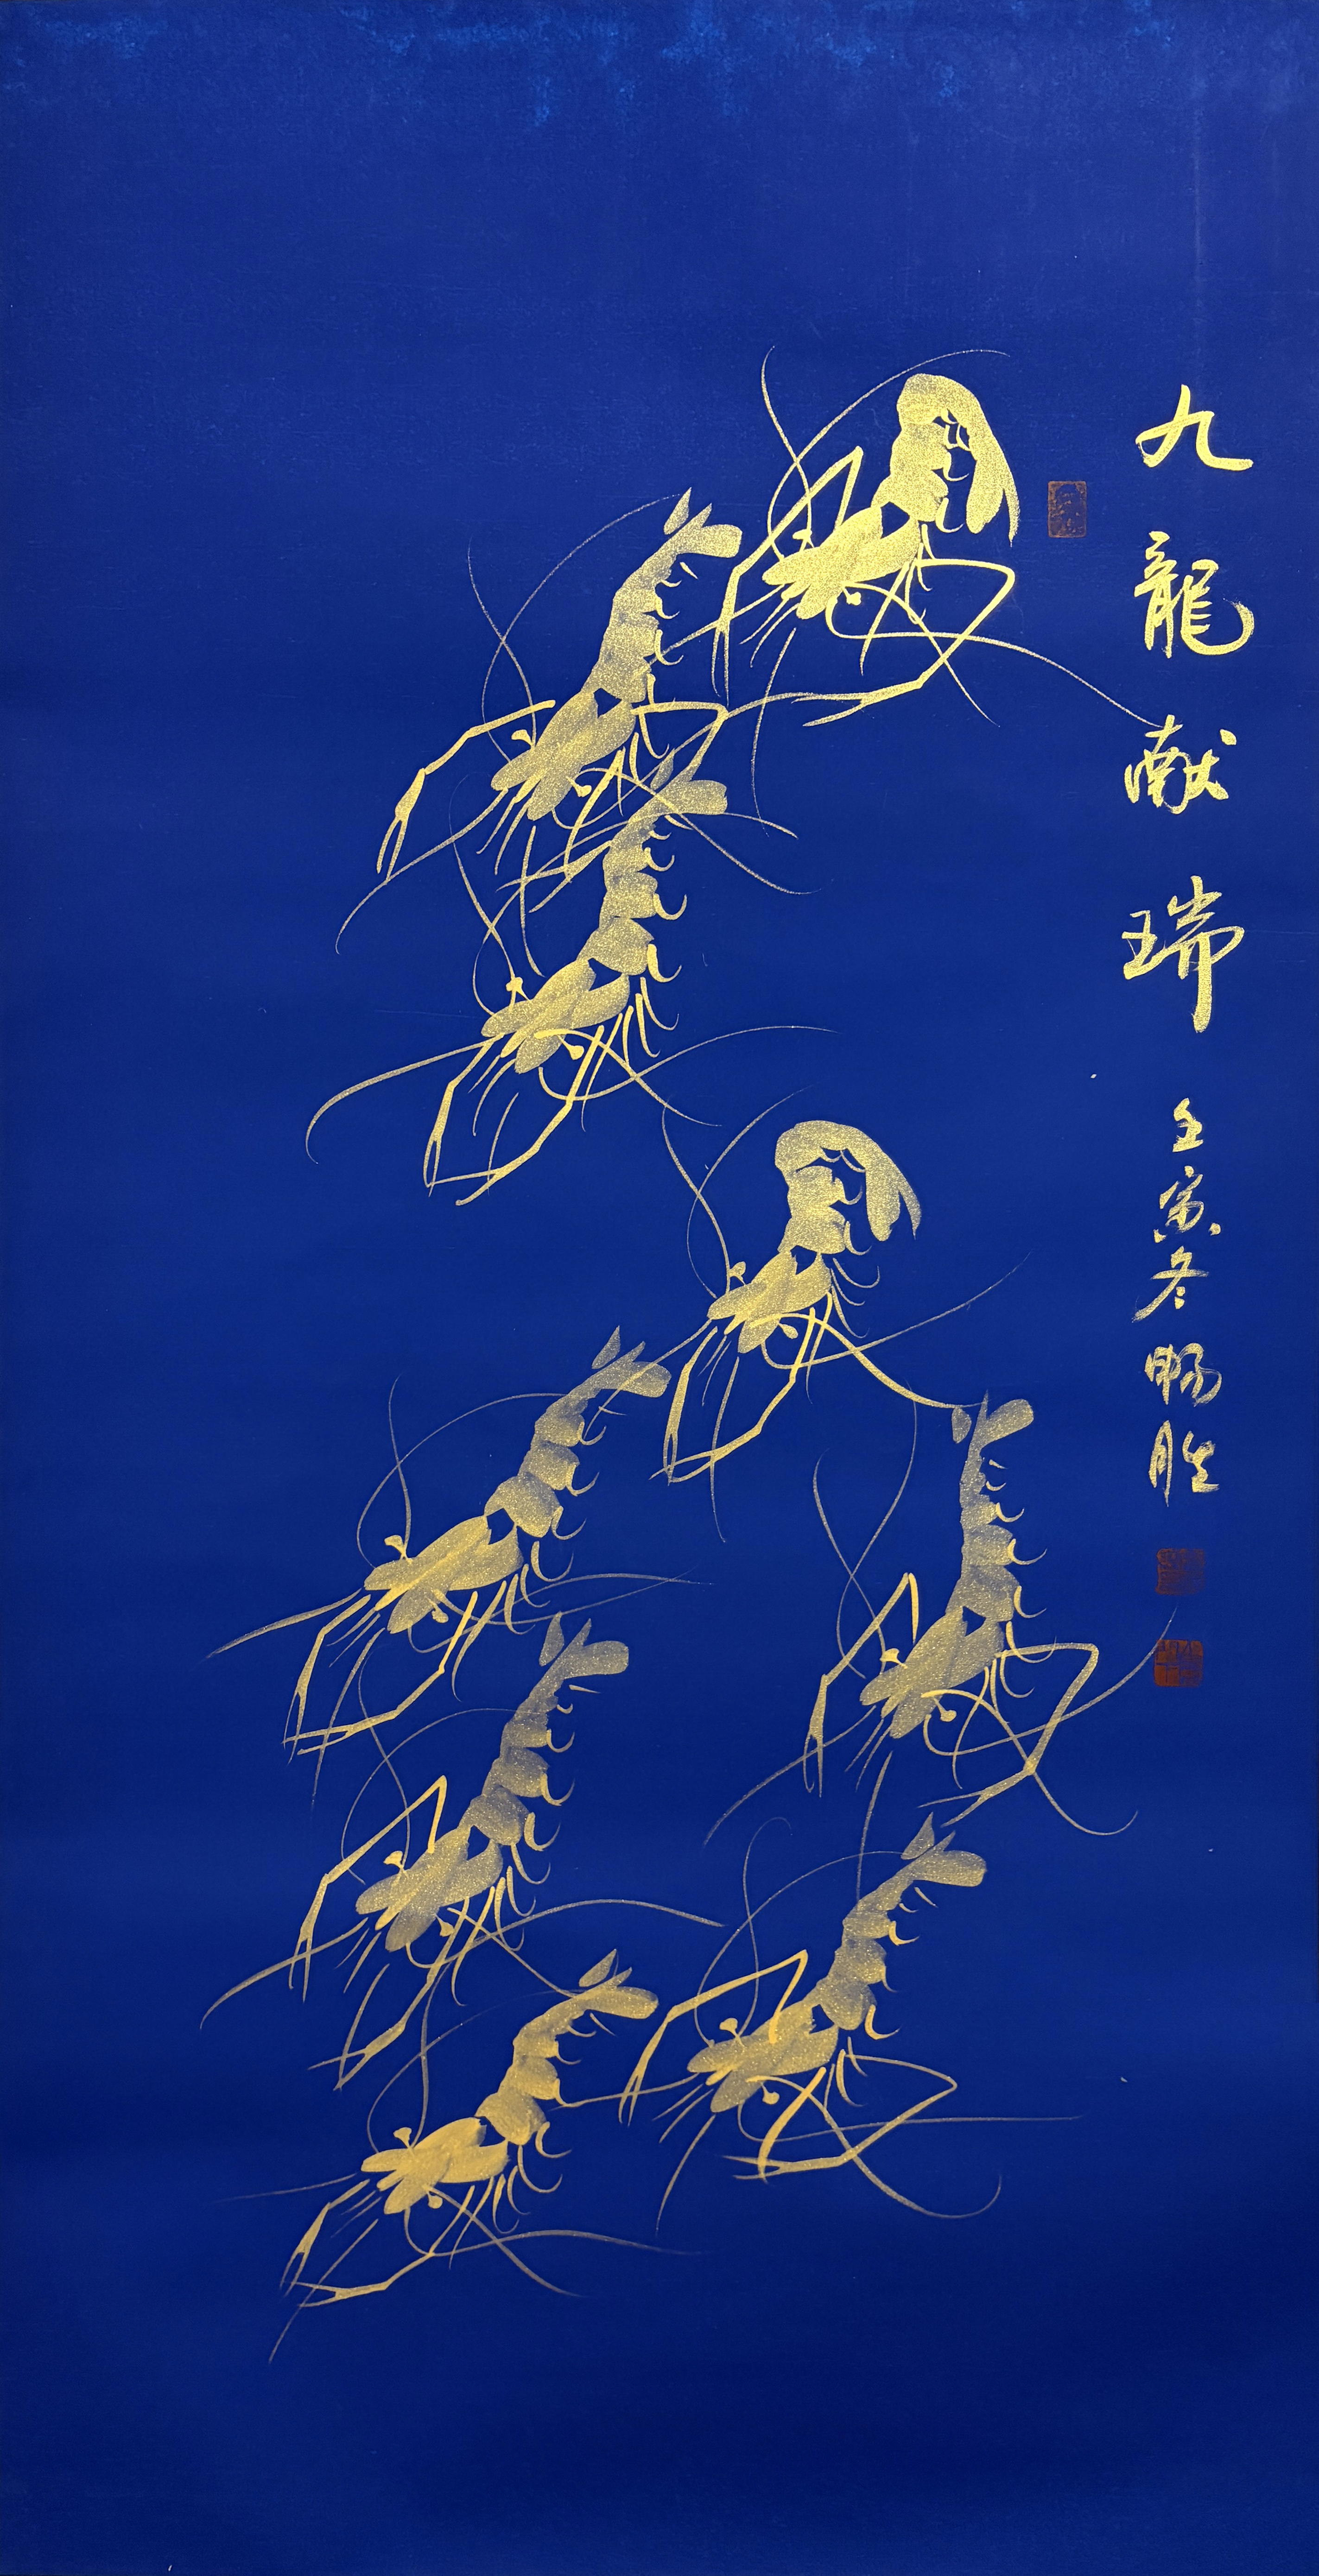 九龍献瑞
壬寅冬 畅胜